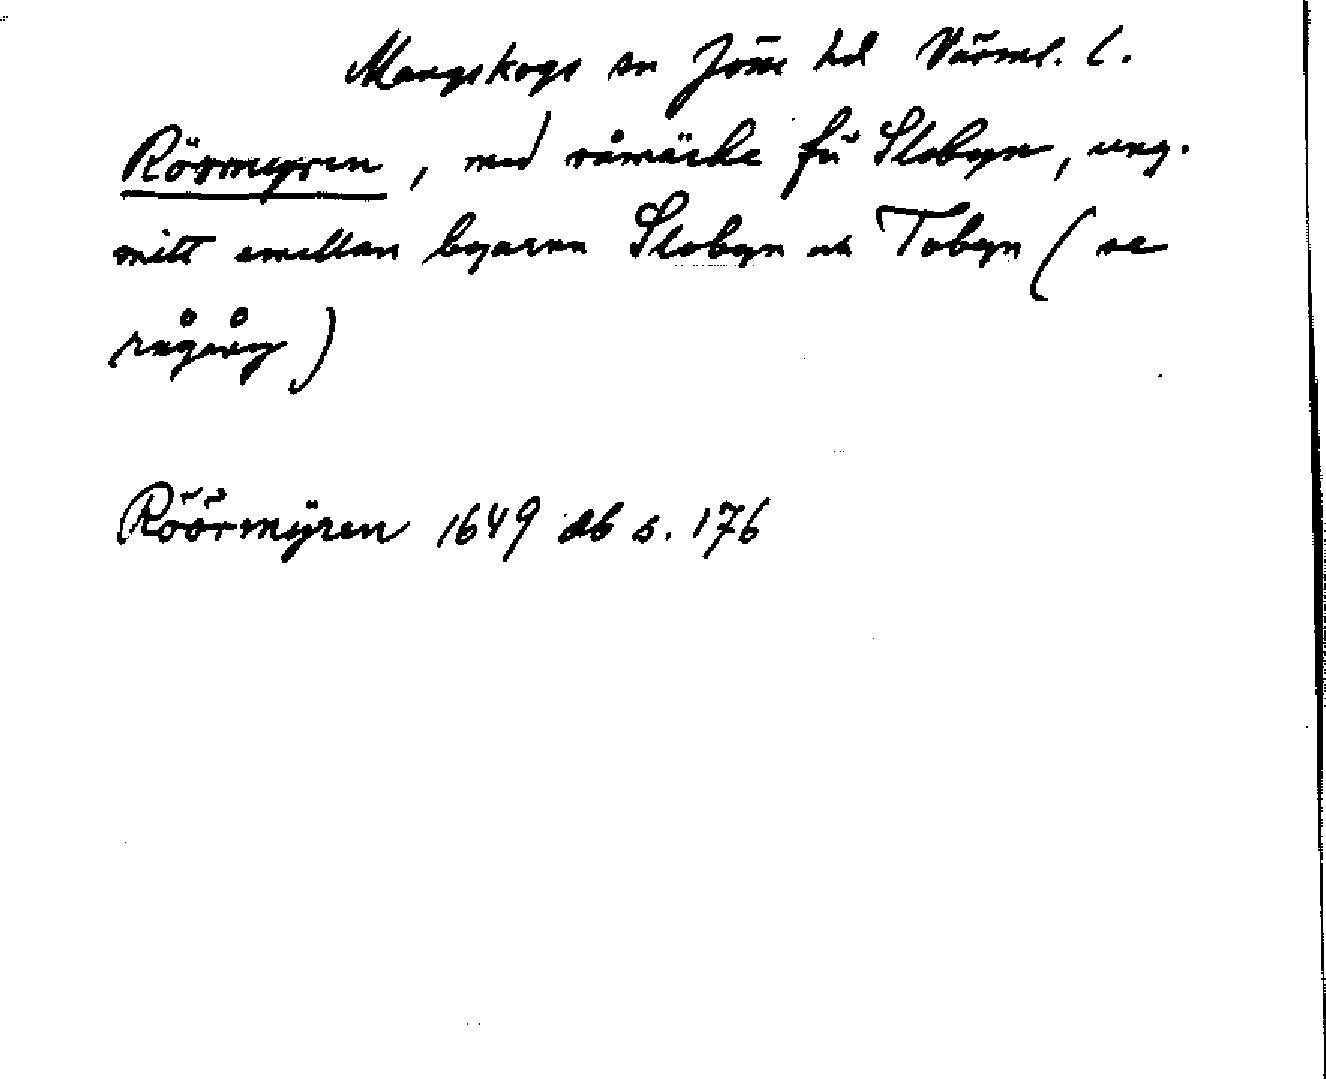 Mangskogs sn Jösse hd Värml. l.
Rörmyren, med råmärke för Slobyn, ung.
mitt emellan byarna Slobyn och Tobyn (se
rågång)
Röörmÿren 1649 db s. 176